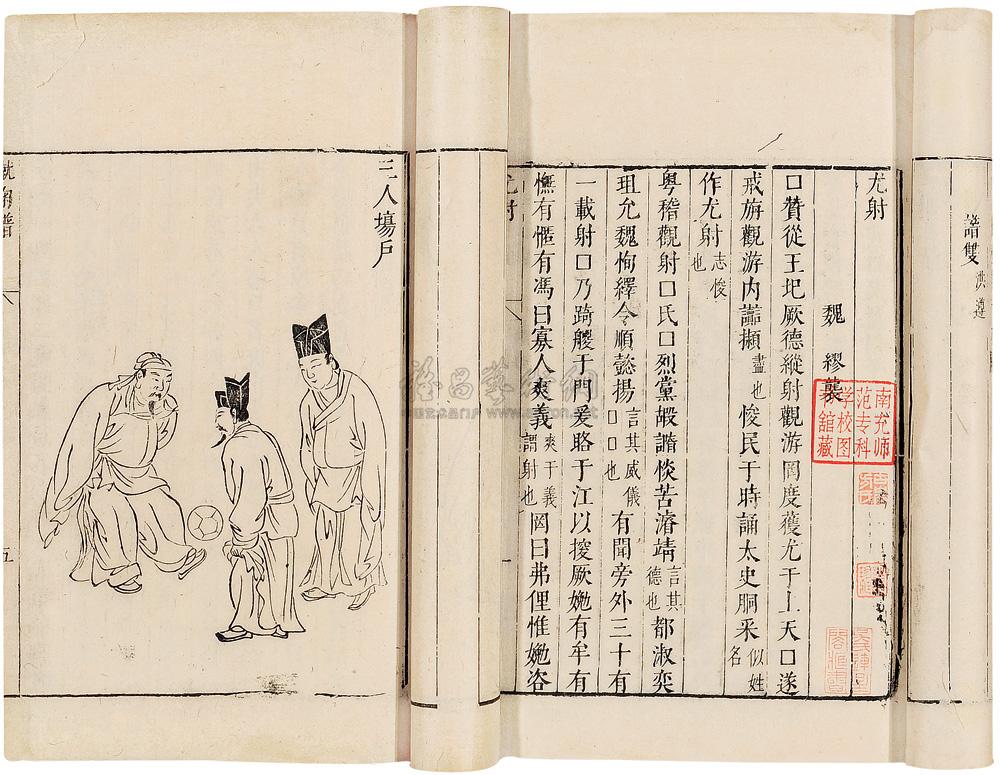 譜雙 洪遵
尤射
魏 繆襲
口贊從王圯厥德縱射觀游罔度獲尤于上天口遂
戒旃觀游内譸擷盡也悛民于時誦太史胴采似姓名
作尤射志悛也
粵稽觀射口氏口烈黨嘏譄惔苦濬靖言其德也都淑奕
珇允魏恂繹令順懿揚言其威儀口口也有聞旁外三十有
一載射口乃踦艐于門爰賂于江以挼厥嬎有牟有
憮有愜有馮曰寡人爽義爽于義謂射也囟曰弗俚惟嬎咨
尤射
一
南充师
范专科
学校图
舘藏
三人場戶
五